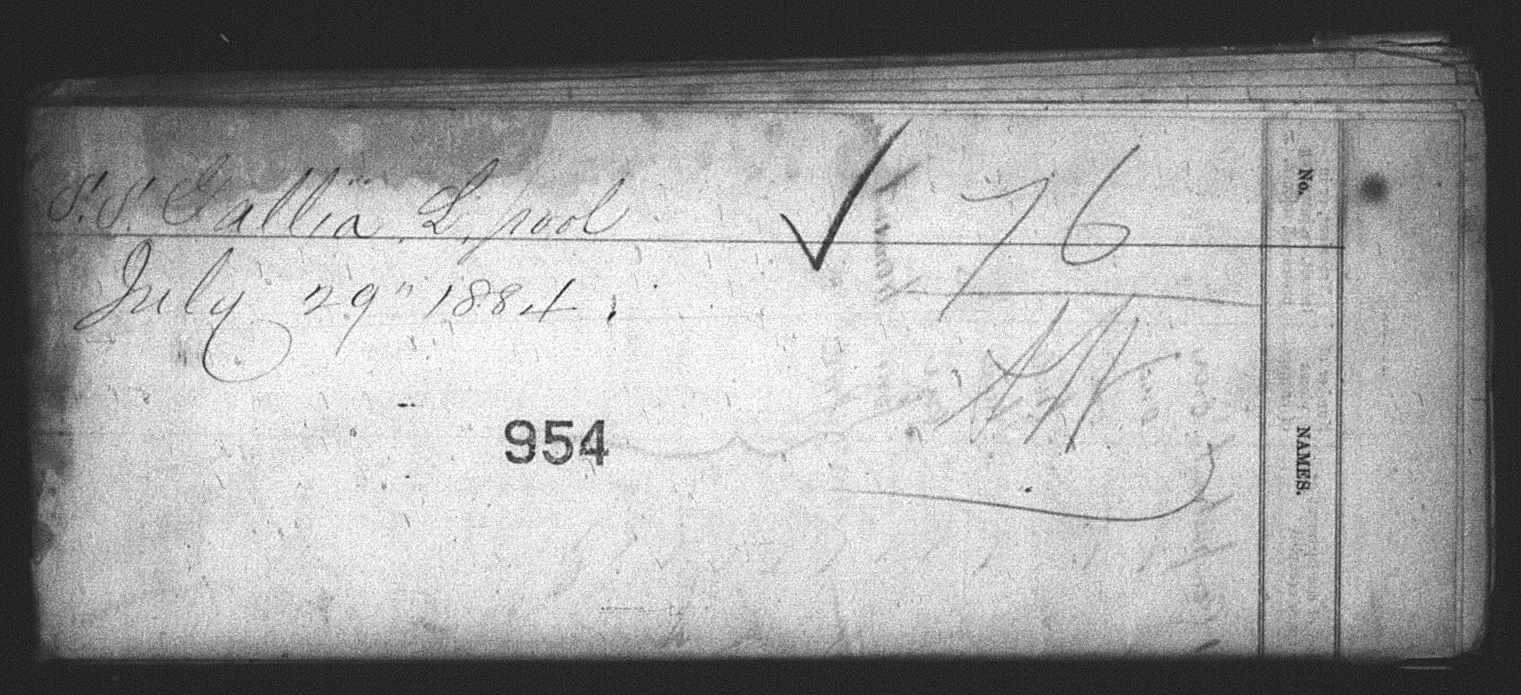 S.S. Gallia L.pool
July 29" 1884.
76
954
No.
NAMES.